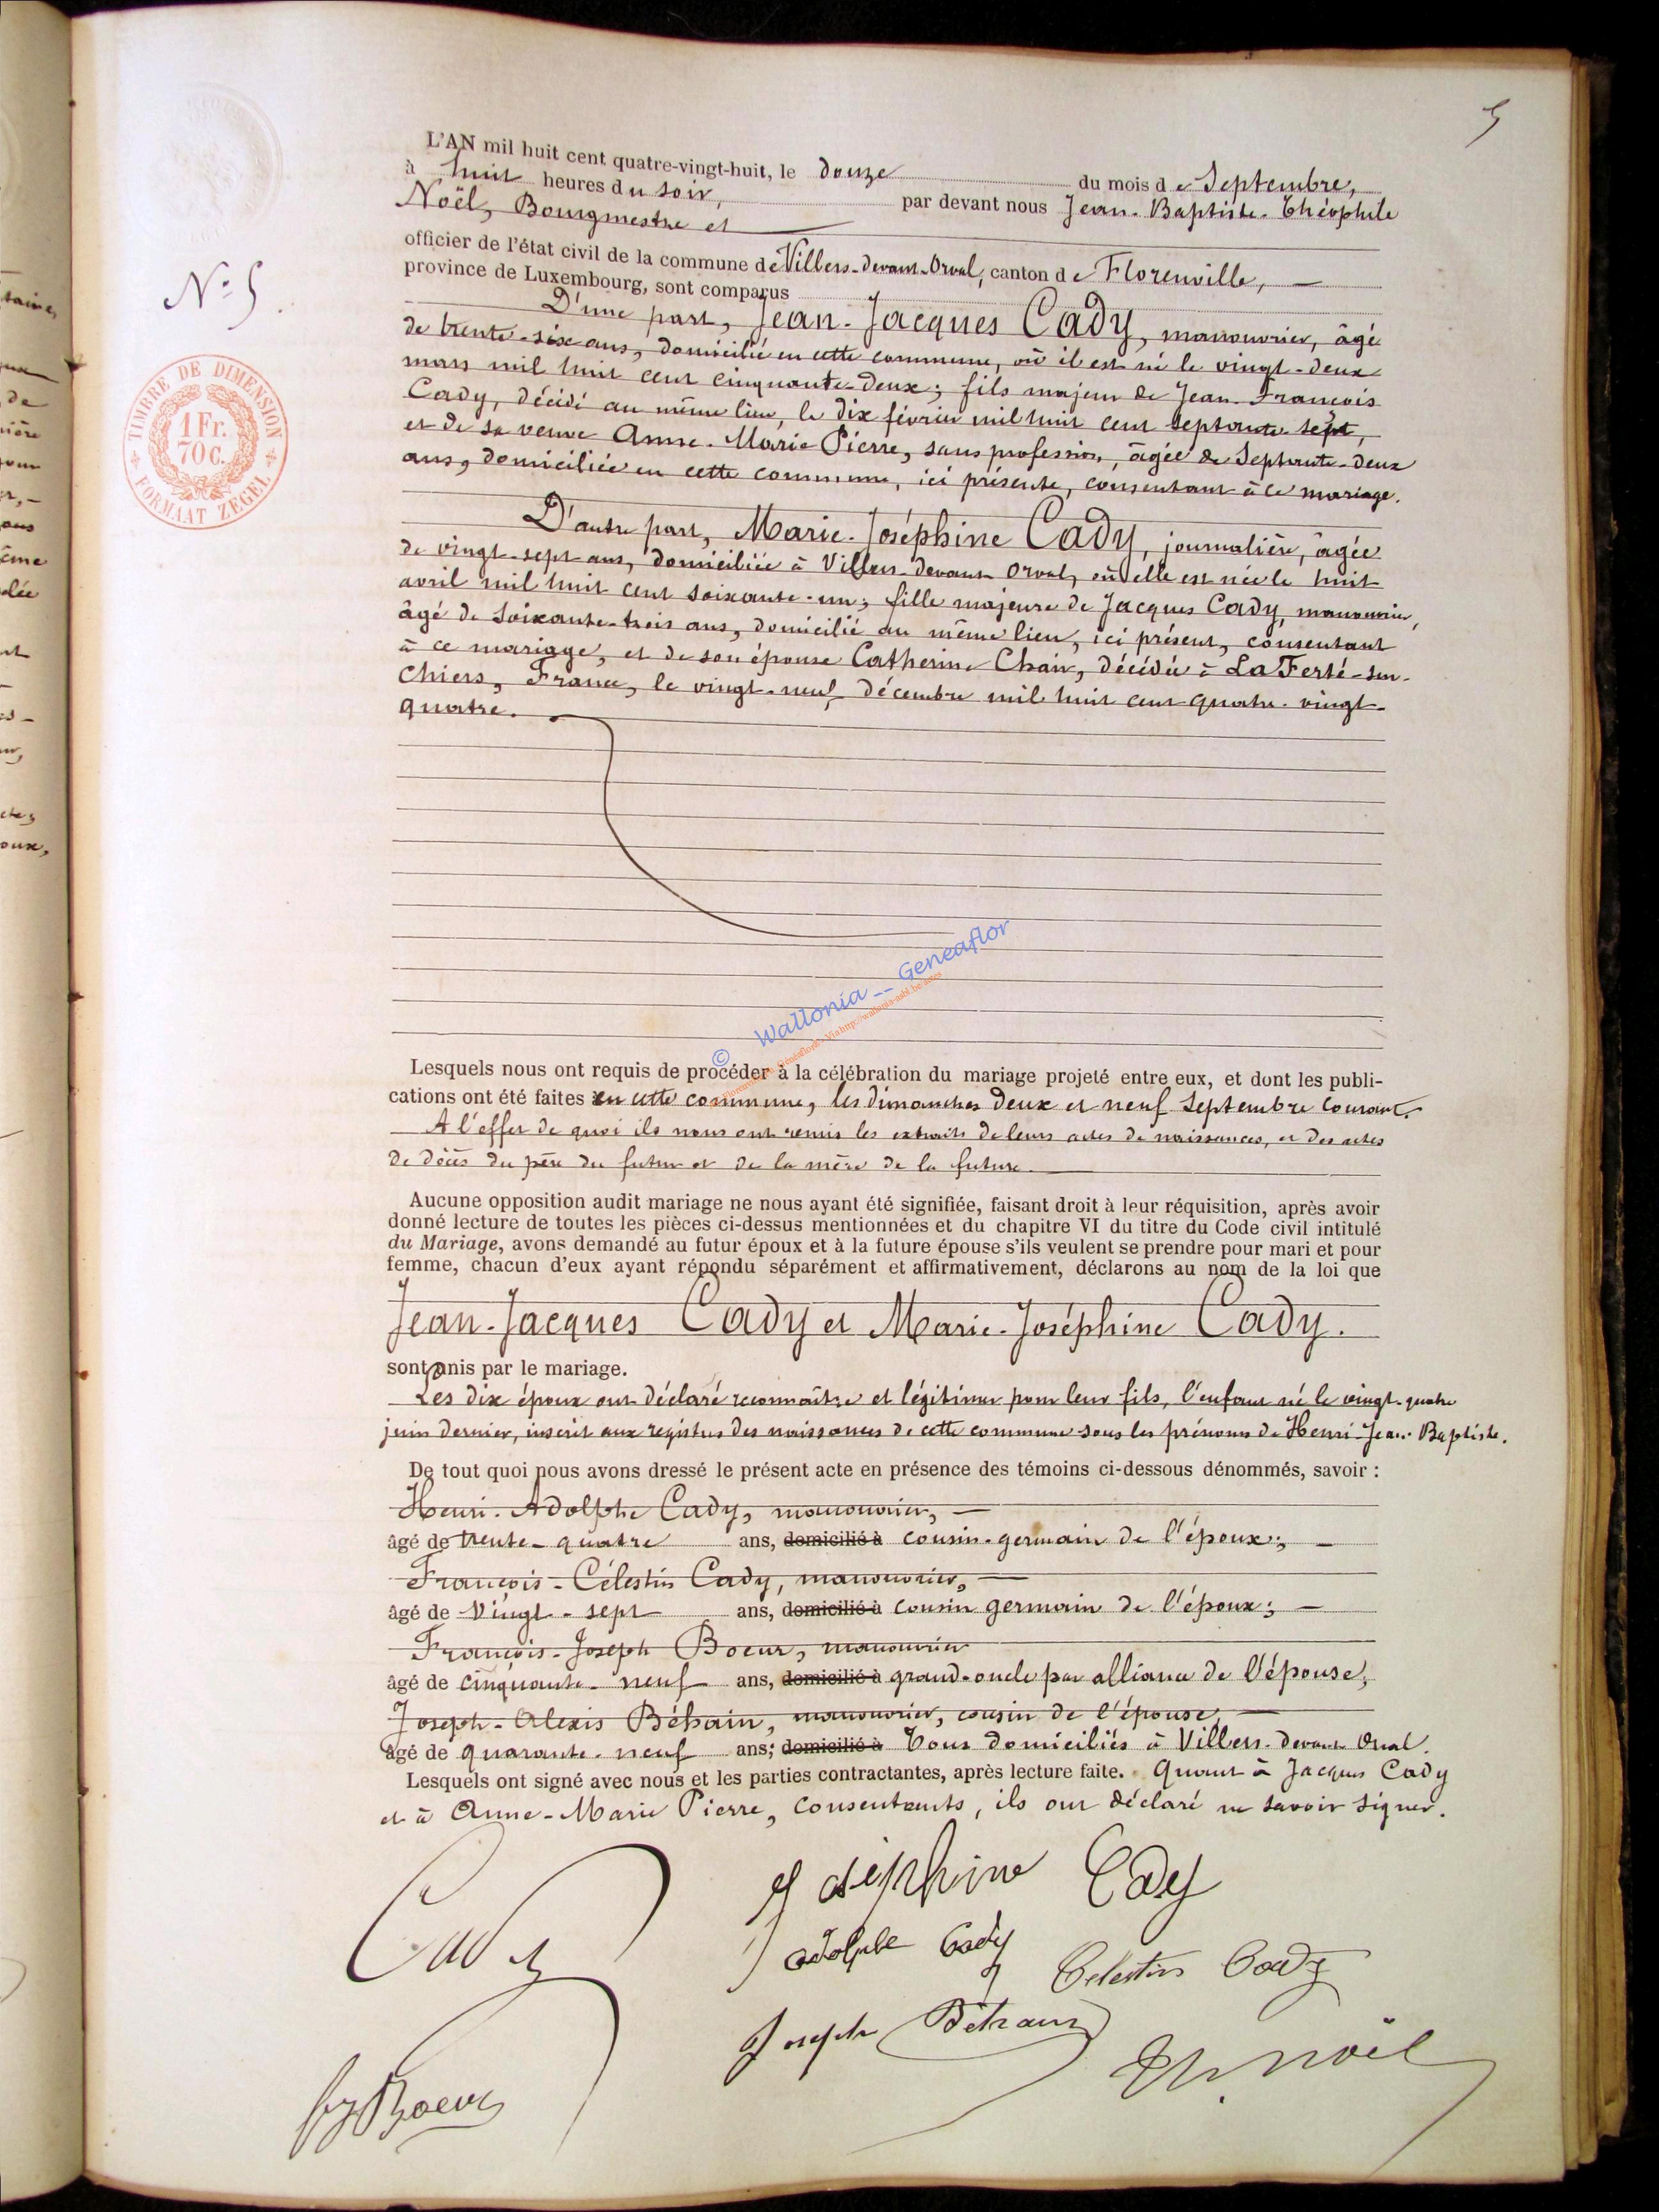 5
L'AN mil huit cent quatre-vingt-huit, le douze du mois de Septembre,
à huit heures du soir, par devant nous Jean-Baptiste-Théophile
Noël, Bourgmestre et
officier de l'état civil de la commune de Villers-devant-Orval, canton de Florenville,
province de Luxembourg, sont comparus
N° 5.
D'une part, Jean-Jacques Cady, manouvrier, âgé
de trente-six ans, domicilié en cette commune, où il est né le vingt-deux
mars mil huit cent cinquante-deux; fils majeur de Jean-François
Cady, décédé au même lieu, le dix février mil huit cent septante-sept,
et de sa veuve Anne-Marie Pierre, sans profession, âgée de septante-deux
ans, domiciliée en cette commune, ici présente, consentant à ce mariage.
TIMBRE DE DIMENSION
1 Fr.
70 C.
FORMAAT ZEGEL
D'autre part, Marie-Joséphine Cady, journalière, âgée
de vingt-sept ans, domiciliée à Villers-devant-Orval, où elle est née le huit
avril mil huit cent soixante-un; fille majeure de Jacques Cady, manouvrier,
âgé de soixante-trois ans, domicilié au même lieu, ici présent, consentant
à ce mariage, et de son épouse Catherine Chair, décédée à La Ferté-sur-
Chiers, France, le vingt-neuf décembre mil huit cent quatre-vingt-
quatre.
© Wallonia -- Geneaflor
Lesquels nous ont requis de procéder à la célébration du mariage projeté entre eux, et dont les publi-
cations ont été faites en cette commune, les dimanches deux et neuf Septembre courant.
A l'effet de quoi ils nous ont remis les extraits de leurs actes de naissances, et des actes
de décès du père du futur et de la mère de la future.
Aucune opposition audit mariage ne nous ayant été signifiée, faisant droit à leur réquisition, après avoir
donné lecture de toutes les pièces ci-dessus mentionnées et du chapitre VI du titre du Code civil intitulé
du Mariage, avons demandé au futur époux et à la future épouse s'ils veulent se prendre pour mari et pour
femme, chacun d'eux ayant répondu séparément et affirmativement, déclarons au nom de la loi que
Jean-Jacques Cady et Marie-Joséphine Cady.
sont unis par le mariage.
Les dix époux ont déclaré reconnaître et légitimer pour leur fils, l'enfant né le vingt-quatre
juin dernier, inscrit aux registres des naissances de cette commune sous les prénoms de Henri-Jean-Baptiste.
De tout quoi nous avons dressé le présent acte en présence des témoins ci-dessous dénommés, savoir :
Henri-Adolphe Cady, manouvrier,
âgé de trente-quatre ans, domicilié à cousin-germain de l'époux;
François-Célestin Cady, manouvrier,
âgé de vingt-sept ans, domicilié à cousin germain de l'époux;
François-Joseph Boeur, manouvrier
âgé de cinquante-neuf ans, domicilié à grand-oncle par alliance de l'épouse;
Joseph-Alexis Béhain, manouvrier, cousin de l'épouse,
âgé de quarante-neuf ans; domicilié à Tous domiciliés à Villers-devant Orval.
Lesquels ont signé avec nous et les parties contractantes, après lecture faite. Quant à Jacques Cady
et à Anne-Marie Pierre, consentants, ils ont déclaré ne savoir signer.
Cady
Joséphine Cady
Adolphe Cady
Celestin Cady
Joseph Béhain
Th. Noël
Boeur